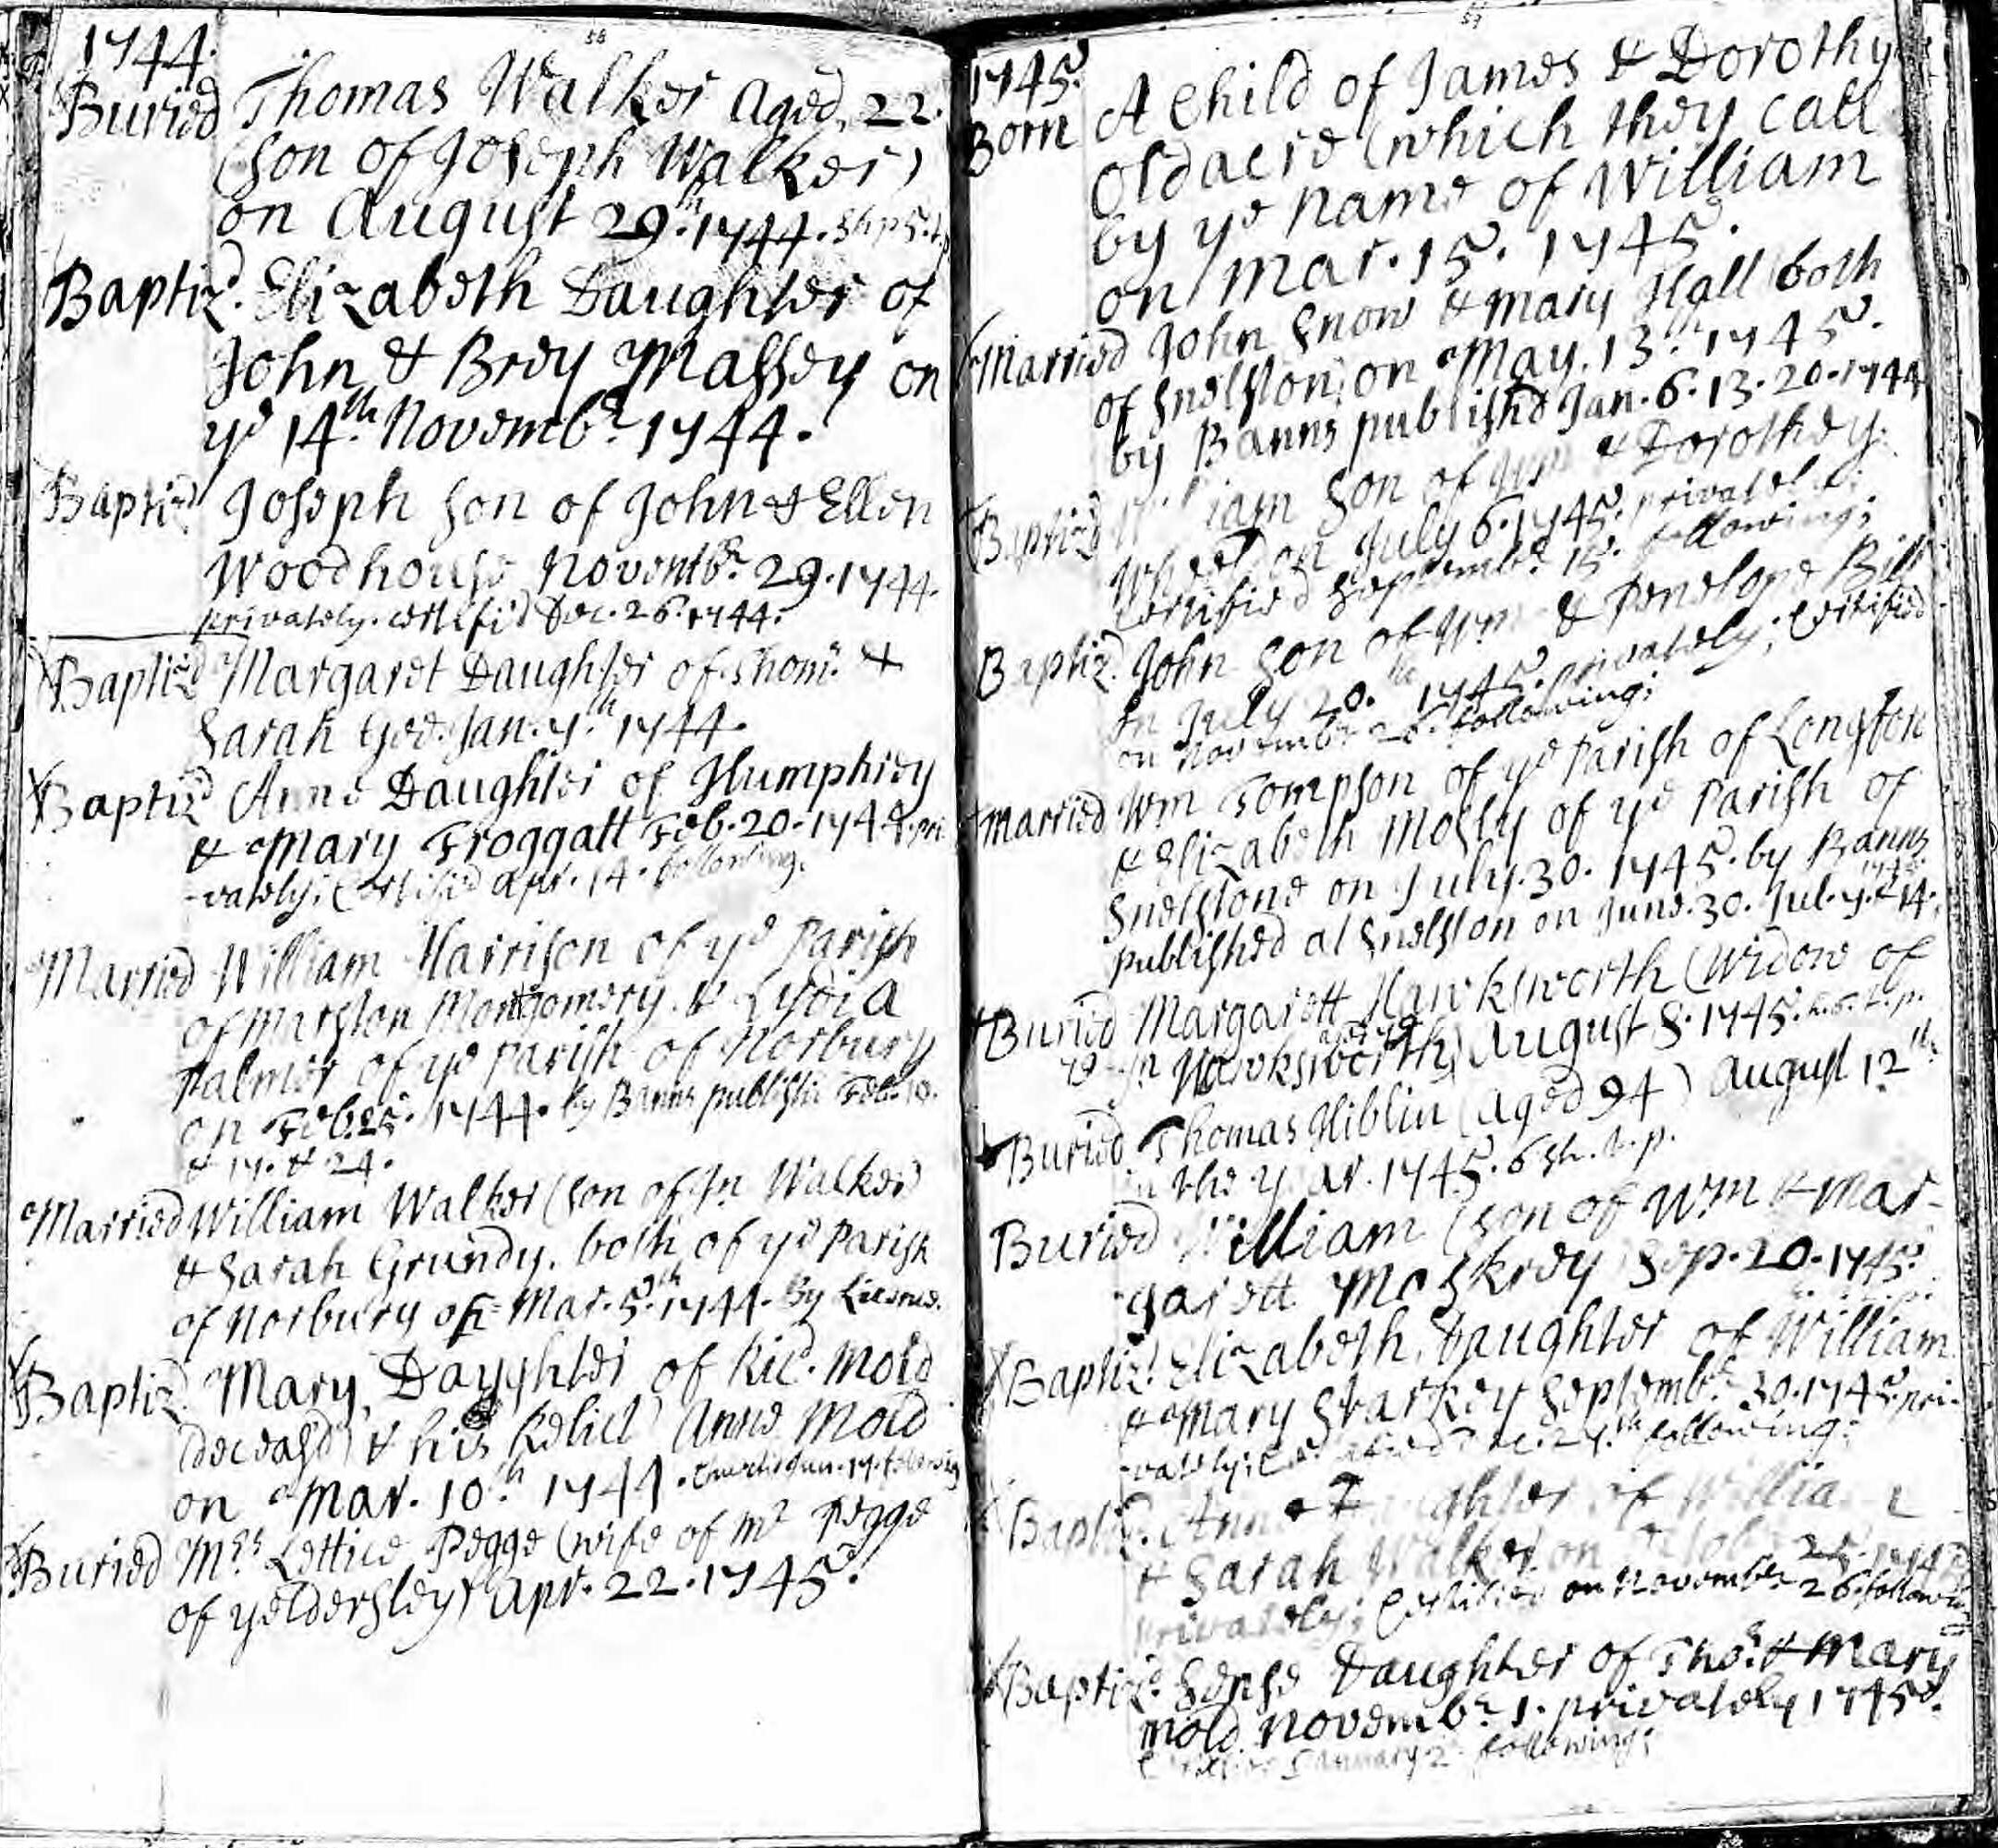 56
1744.
Buried Thomas Walker aged 22.
(son of Joseph Walker)
on August 29.th 1744.
Baptiz'd. Elizabeth Daughter of
John & Brey Massey on
ye 14.th Novembr. 1744.
Baptiz'd Joseph son of John & Ellen
Woodhouse Novembr. 29. 1744.
privately. certifi'd Dec. 26. 1744.
Baptiz'd Margaret Daughter of Thom. &
Sarah Gee. Jan. 7.th 1744.
Baptiz'd Anne Daughter of Humphrey
& Mary Froggatt Feb. 20. 1744. pri
-vately; Certified Apr. 14. following.
Married William Harrison of ye Parish
of Marston Montgomery & Lydia
Palmer of ye Parish of Norbury
on Feb. 25. 1744. by Banns publish'd Feb. 10.
& 17. & 24.
Married William Walker (son of Jn Walker)
& Sarah Grundy. both of ye Parish
of Norbury on Mar. 5.th 1744. By Licence.
Baptiz'd Mary, Daughter of Ric. Mold
(deceas'd) & his Relict Anne Mold
on Mar. 10.th 1744. Jun. 17. following
Buried Mrs. Lettice Pegge (wife of Mr Pegge
of Yeldersley) Apr. 22. 1745.
57
1745.
Born A Child of James & Dorothy
Oldacre (which they call
by ye name of William
on Mar. 15. 1745.
Married John Snow & Mary Hall (both
of Snelston) on May. 13.th 1745.
by Banns publish'd Jan. 6. 13. 20. 1744
Baptiz'd William son of Wm & Dorothey
on July 6. 1745. privately;
Certified Septembr. 15. following;
Baptiz'd. John son of Wm & Penelope Bill
on July 20.th 1745. privately; Certified
on Novembr 26. following;
Married Wm Tompson of ye Parish of Longford
& Elizabeth Mosly of ye Parish of
Snelstone on July. 30. 1745. by Banns
published at Snelston on June. 30. Jul. 7. & 14. 1745.
Buried Margarett Hawksworth (Widow of
Jn Hawksworth) August 8. 1745.
Buried Thomas Hiblin (aged 94) August 12th
in the year. 1745.
Buried William (son of Wm & Mar-
garett Moskrey) Sep. 20. 1745.
Baptiz'd Elizabeth, Daughter of William
& Mary Starkey Septembr. 30. 1745. pri-
vately; Certified Dec. 27.th following;
Baptiz'd. Anne Daughter of William
& Sarah Walker. on 25. 1745
privately; Certified on Novembr 26. following
Baptiz'd. Sense Daughter of Thos. & Mary
Mold Novembr 1. privately 1745.
Certified January 2 following;